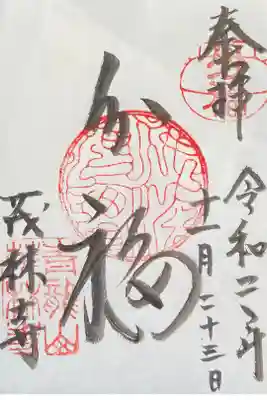 奉拝
令和二年
十一月二十三日
分福
茂林寺